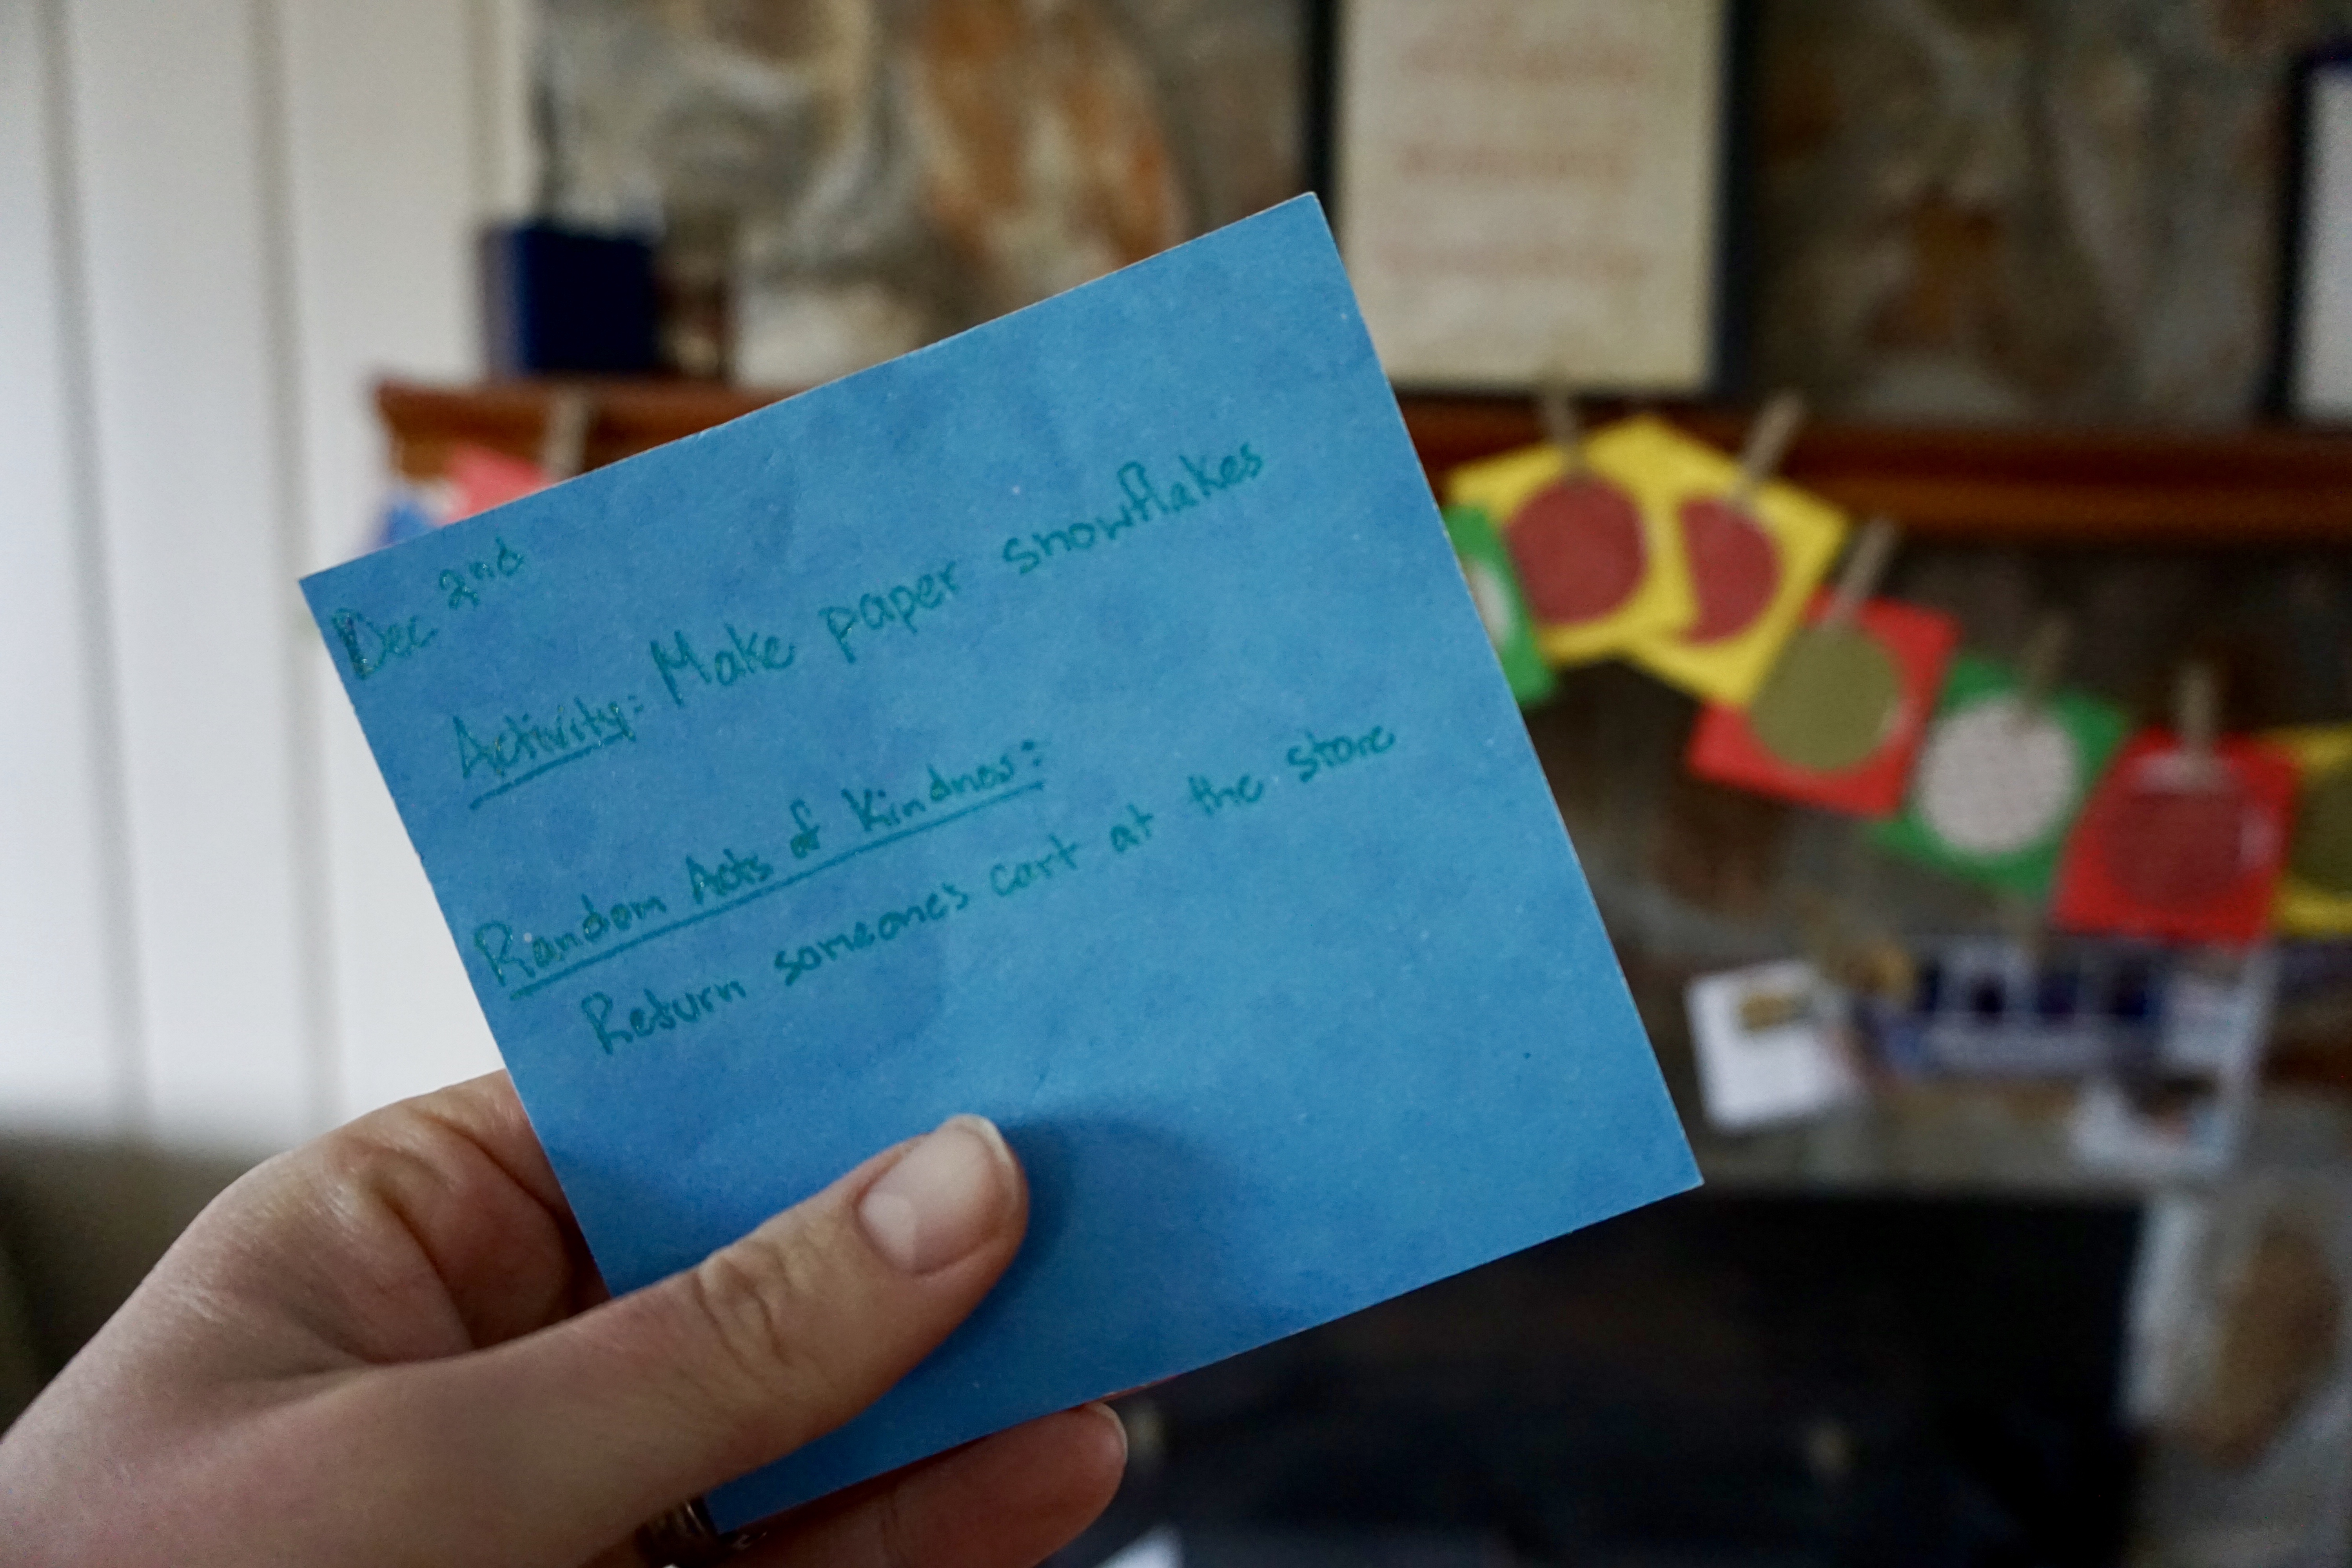 Dec 2nd
Activity: Make paper snowflakes
Random Acts of Kindness:
Return someone's cart at the store